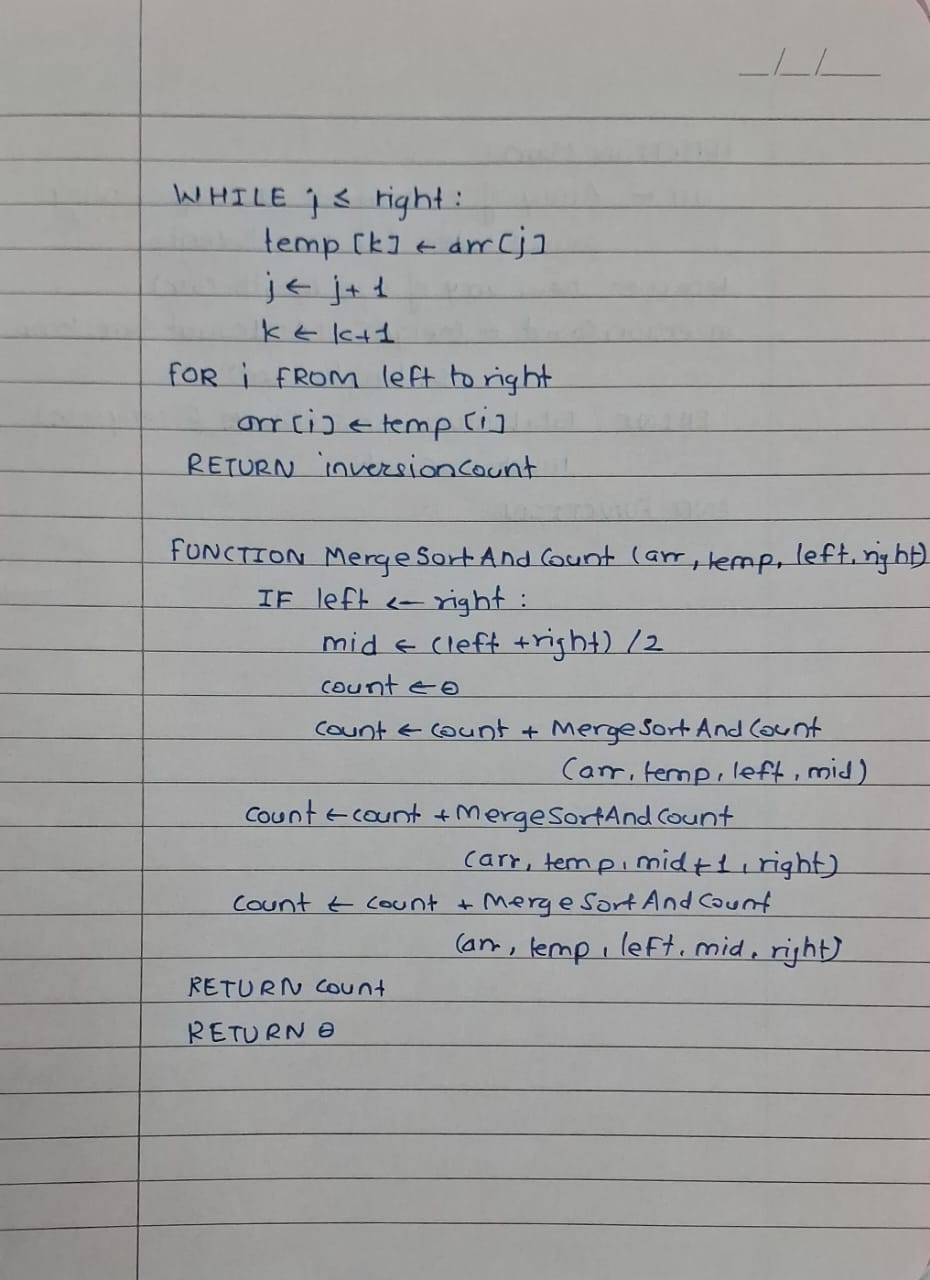 WHILE j ≤ right:
temp[k] ← arr[j]
j ← j+1
k ← k+1
FOR i FROM left to right
arr[i] ← temp[i]
RETURN inversioncount
FUNCTION MergeSortAndCount (arr, temp, left, right)
IF left ← right:
mid ← (left + right) / 2
count ← 0
count ← count + MergeSortAndCount
(arr, temp, left, mid)
count ← count + MergeSortAndCount
(arr, temp, mid+1, right)
count ← count + MergeSortAndCount
(arr, temp, left, mid, right)
RETURN count
RETURN 0